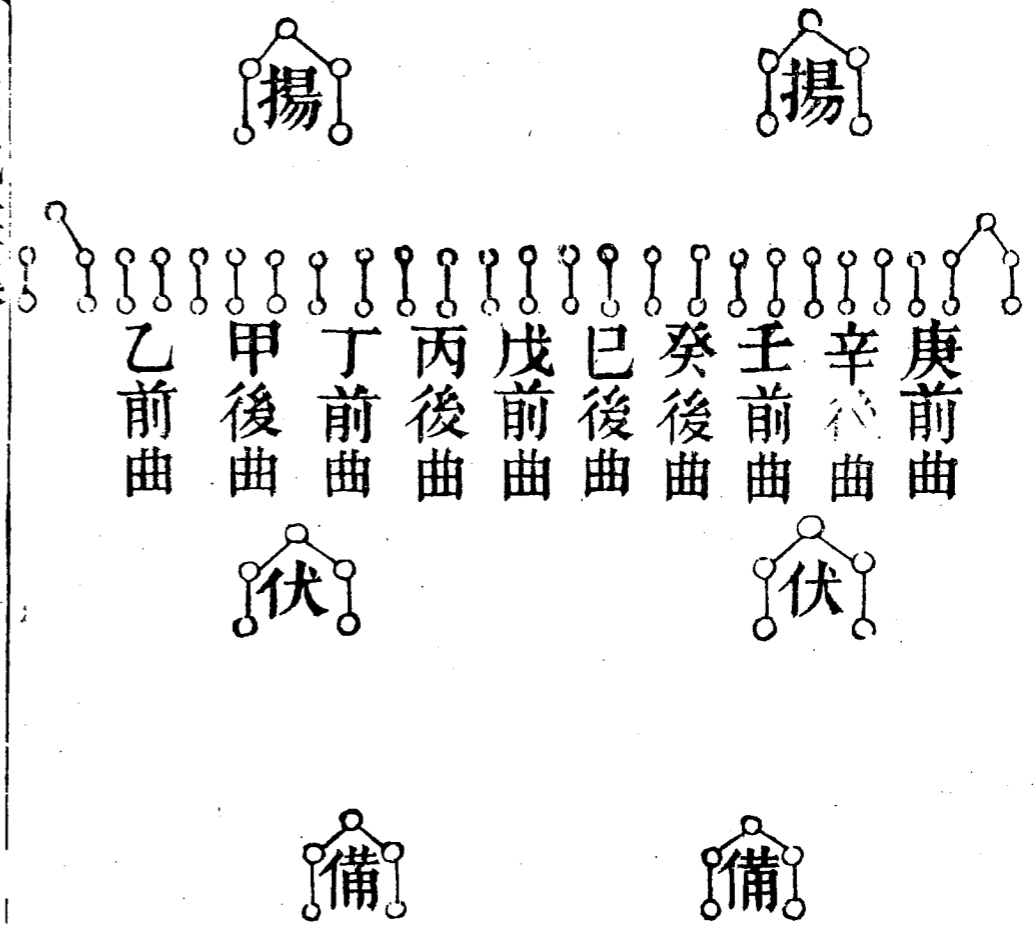 揚
揚
庚前曲
辛後曲
壬前曲
癸後曲
巳後曲
戊前曲
丙後曲
丁前曲
甲後曲
乙前曲
伏
伏
備
備